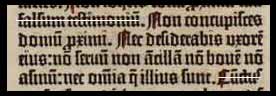 falsum testimoniū. Non concupisces
domū proximi. Nec desiderabis uxorē
eius: nō servum non ācillā nō bovē nō
asinū: nec om̄ia q̄ illius sunt. Cunctus